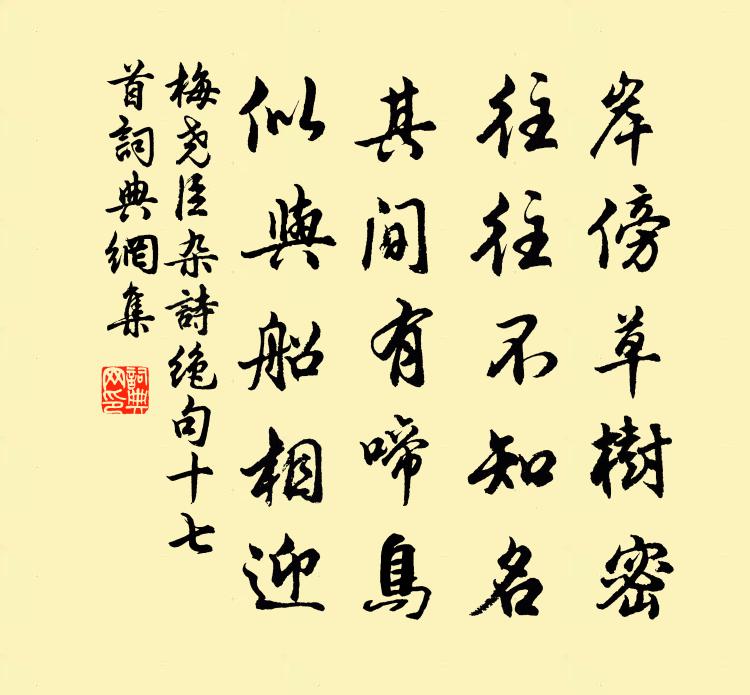 岸傍草樹密
往往不知名
其間有啼鳥
似與船相迎
梅尧臣杂詩绝句十七
首詞典網集
詞典
网印